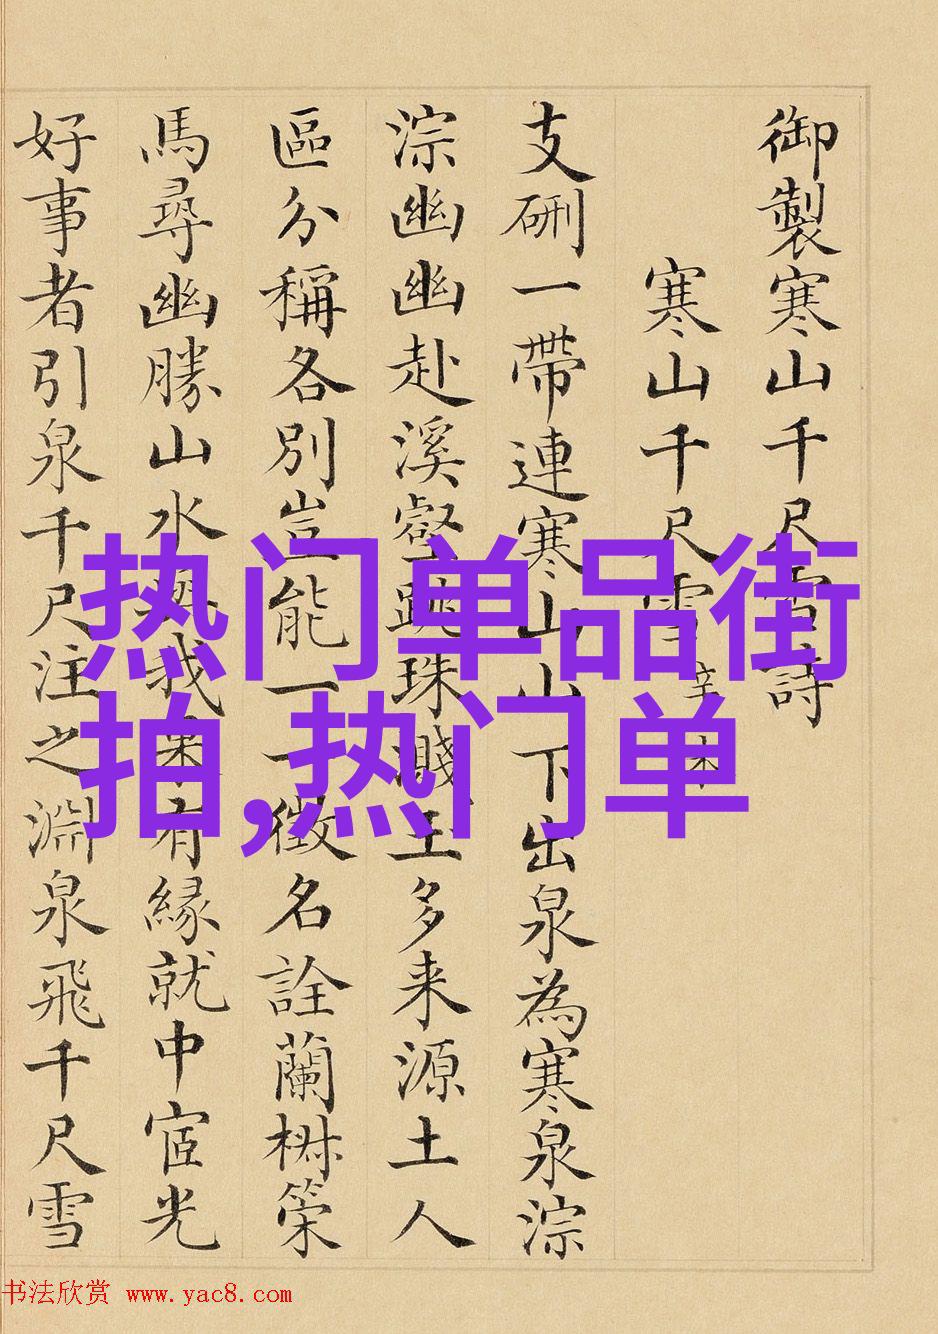 御製寒山千尺雪詩
寒山千尺雪 辛未
支硎一帶連寒山山下出泉為寒泉淙
淙幽幽赴溪壑跳珠濺玉多来源土人
區分稱各別豈能一一徵名詮蘭椒策
馬尋幽勝山水與我果有緣就中宧光
好事者引泉千尺注之淵泉飛千尺雪
热门单品街
拍,热门单
书法欣赏 www.yac8.com